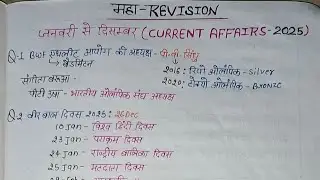 महा-REVISION
जनवरी से दिसम्बर (CURRENT AFFAIRS-2025)
Q-1 BWF एथलीट आयोग की अध्यक्ष - पी.वी. सिंधु
बैडमिंटन
2016: रियो ओलंपिक - Silver
संगीता बरुआ -
2020: टोक्यो ओलंपिक - BRONZE
पीटी उषा - भारतीय ओलंपिक संघ अध्यक्ष
Q.2 वीर बाल दिवस 2025: 26 DEC
10 Jan - विश्व हिंदी दिवस
23 Jan - पराक्रम दिवस
24 Jan - राष्ट्रीय बालिका दिवस
25 Jan - मतदाता दिवस